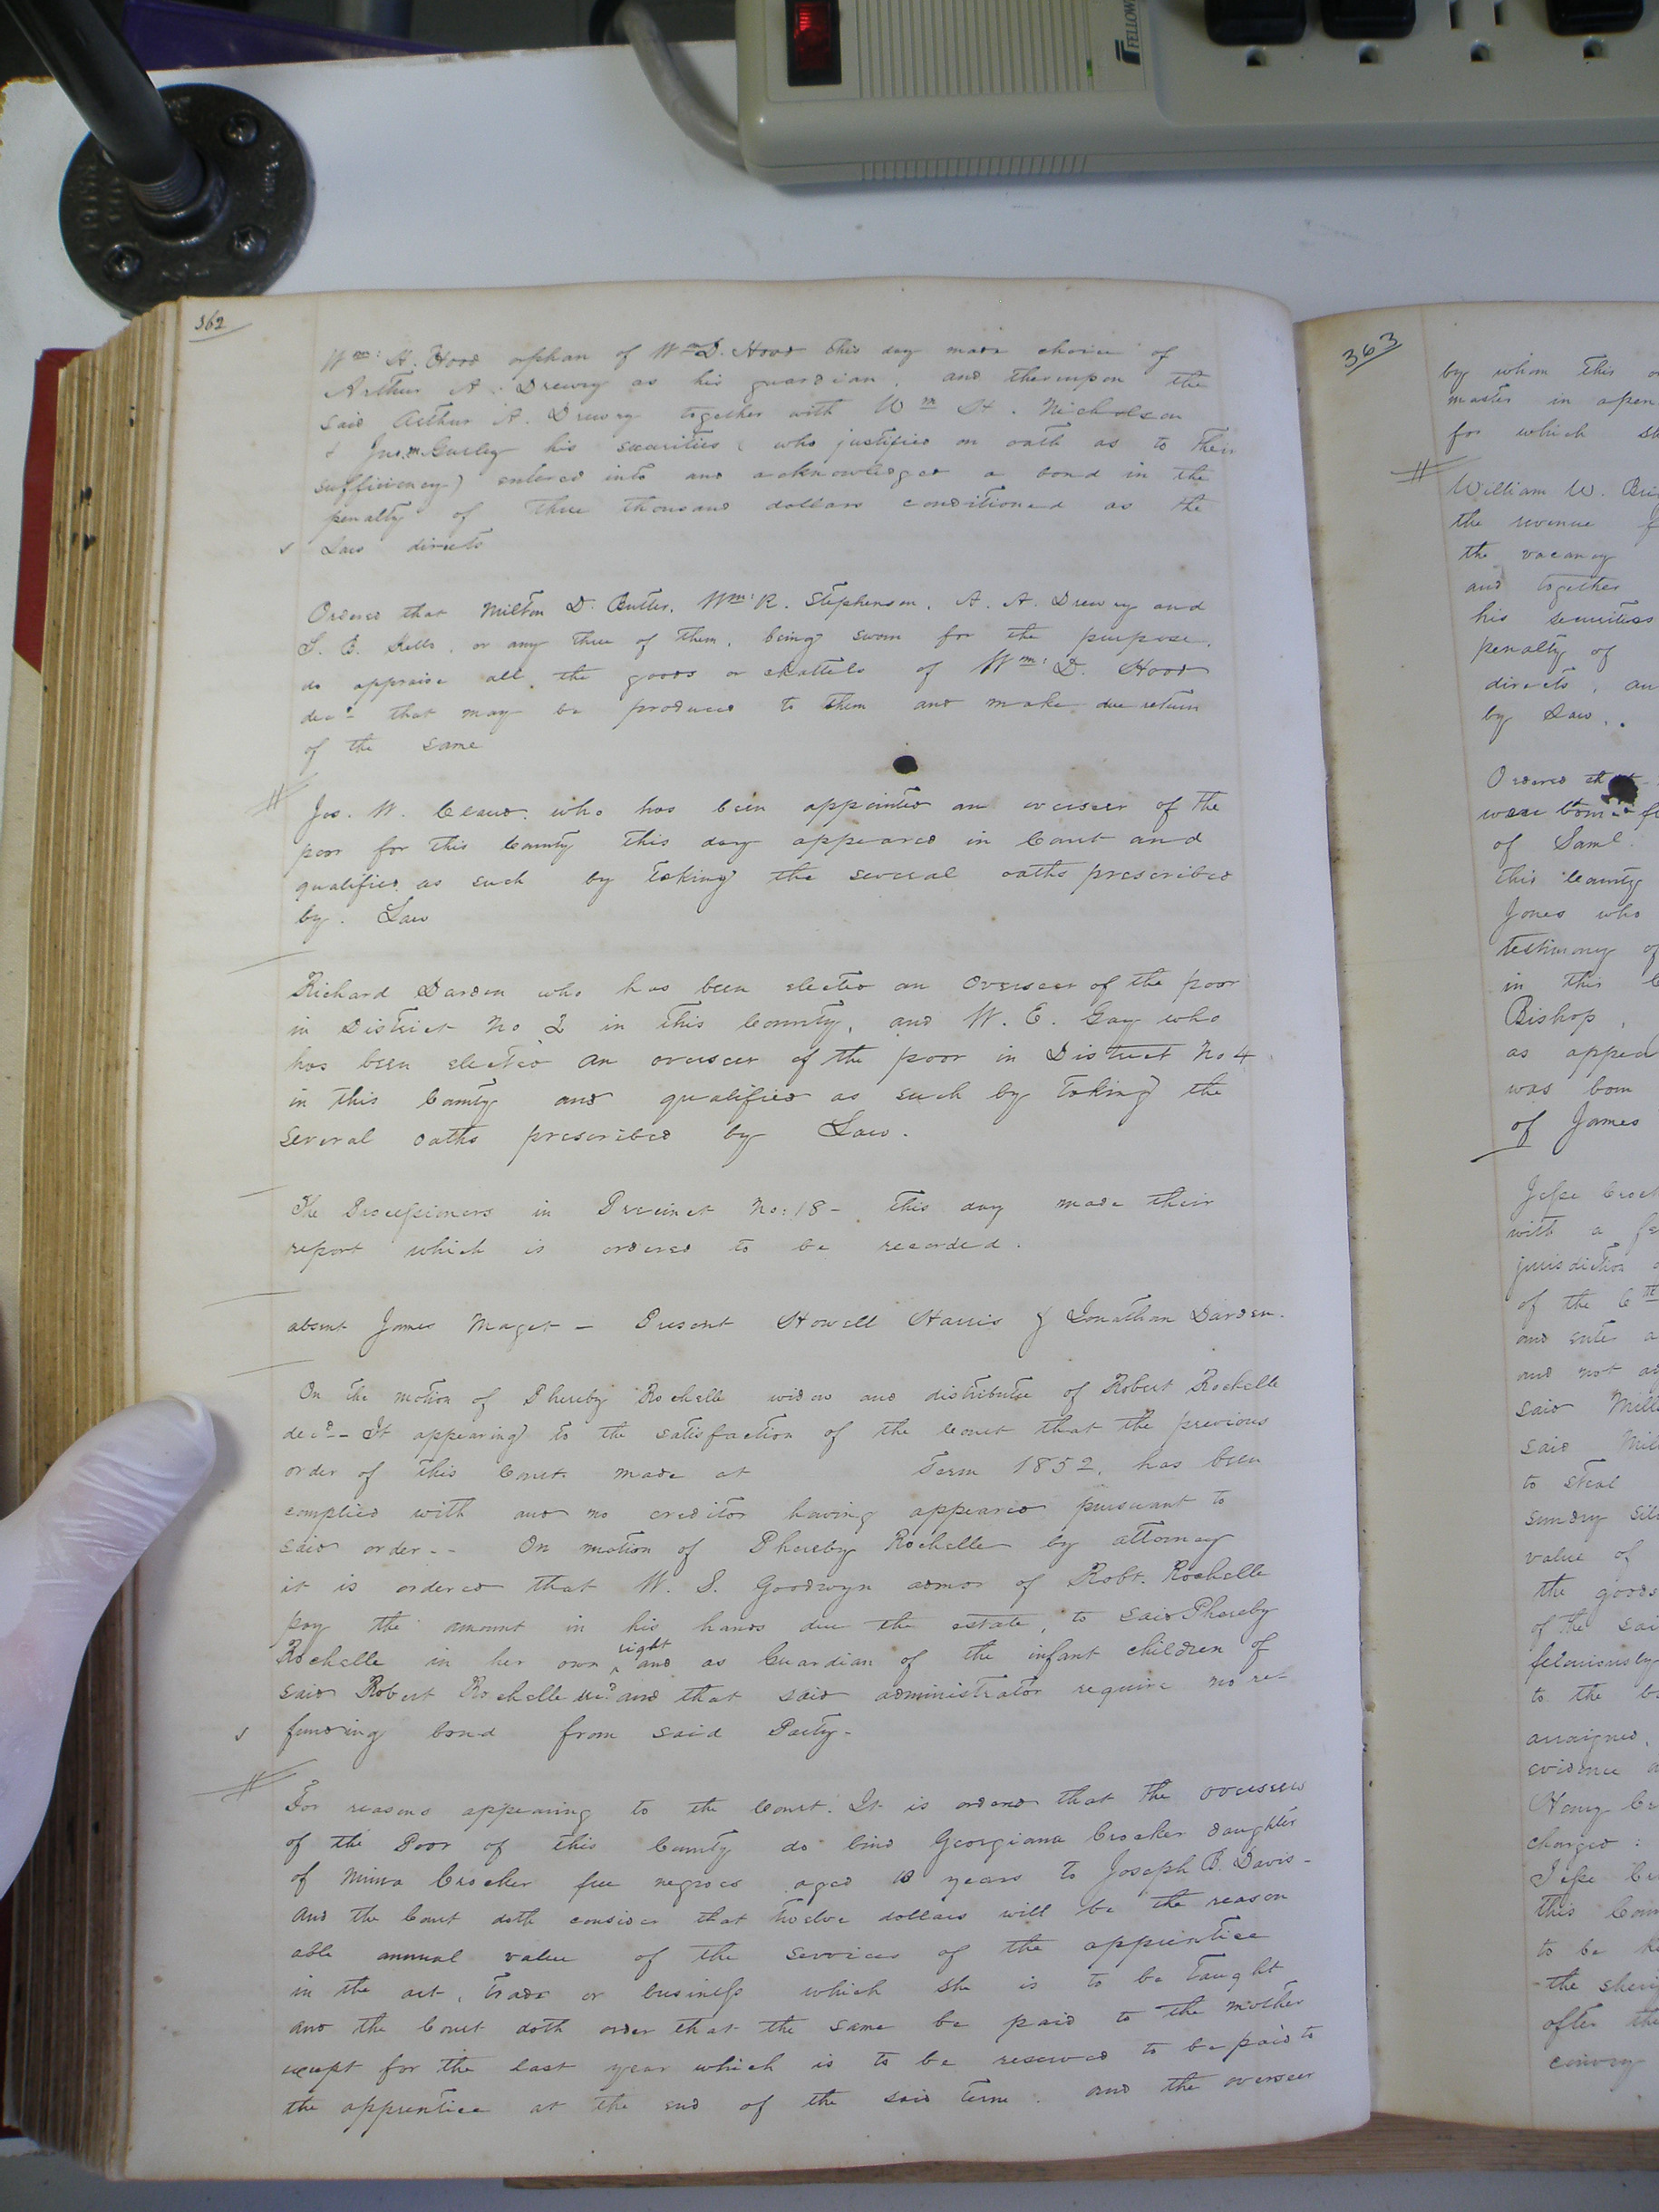 FELLOW
362
Wm: H. Hood orphan of Wm D. Hood this day made choice of
Arthur A. Drewry as his guardian, and thereupon the
said Arthur A. Drewry together with Wm H. Nicholson
& Jno. Gurley his securities (who justified on oath as to their
sufficiency) entered into and acknowledged a bond in the
penalty of three thousand dollars conditioned as the
Law directs
Ordered that Milton D. Butler, Wm: R. Stephenson, A. A. Drewry and
S. B. Kello, or any three of them, being sworn for the purpose,
do appraise all the goods or chattels of Wm: D. Hood
decd that may be produced to them and make due return
of the same
Jos. W. Claud, who has been appointed an overseer of the
poor for this County this day appeared in Court and
qualified as such by taking the several oaths prescribed
by. Law
Richard Darden who has been elected an Overseer of the poor
in District No 2 in this County, and W. E. Gay who
has been elected an overseer of the poor in District No 4
in this County and qualified as such by taking the
several oaths prescribed by Law.
The Processioners in Precinct No: 18 - this day made their
report which is ordered to be recorded.
absent James Maget - Present Howell Harris & Jonathan Darden.
On the motion of Phereby Rochelle widow and distributee of Robert Rochelle
decd - It appearing to the satisfaction of the Court that the previous
order of this Court made at Term 1852, has been
complied with and no creditor having appeared pursuant to
said order - - On motion of Phereby Rochelle by attorney
it is ordered that W. S. Goodwyn admor of Robt. Rochelle
pay the amount in his hands due the estate, to said Phereby
Rochelle in her own right and as Guardian of the infant children of
said Robert Rochelle decd and that said administrator require no re-
funding bond from said Party -
For reasons appearing to the Court. It is ordered that the overseers
of the Poor of this County do bind Georgiana Crocker daughter
of Mima Crocker free negroes aged 10 years to Joseph B. Davis -
and the Court doth consider that twelve dollars will be the reason
able annual value of the services of the apprentice
in the art, trade or business which she is to be taught
and the Court doth order that the same be paid to the mother
except for the last year which is to be reserved to be paid to
the apprentice at the end of the said term. and the overseer
363
by whom this
master in open
for which
William W. Bri
the revenue f
the vacancy
and together
his securities
penalty of
directs, an
by Law.
Ordered that
were born f
of Saml.
this County
Jones who
testimony of
in this C
Bishop,
as appea
was born
of James
Jesse Crock
with a fe
jurisdiction
of the 6th
and enter a
and not
said Mill
said Mil
to steal
sundry sil
value of
the goods
of the sai
feloniously
to the
arraigned,
evidence
Henry Cr
charged:
Jesse Cr
this Coun
to be
the sheri
after the
convey